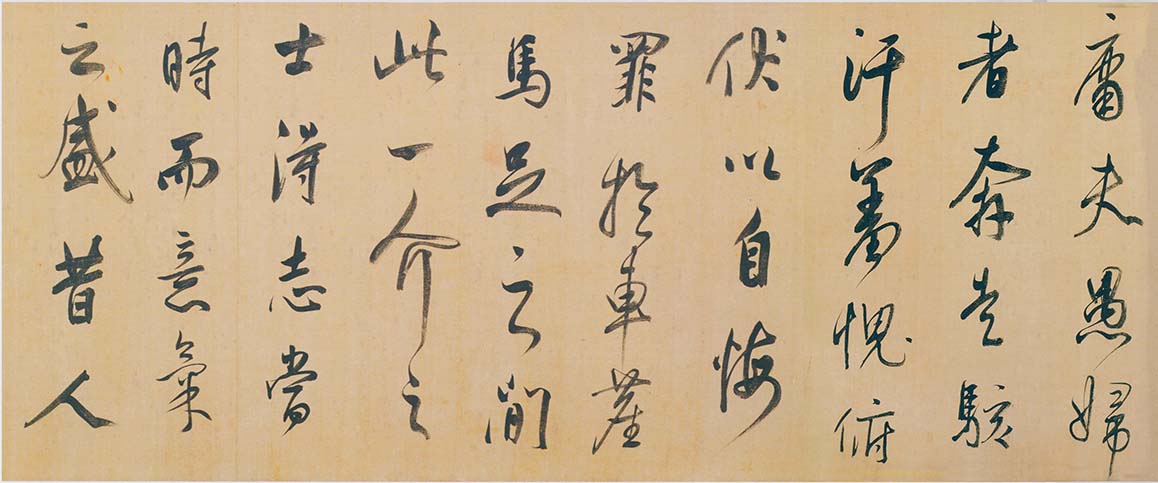 庸夫愚婦
者奔走駭
汗羞愧俯
伏以自悔
罪於車塵
馬足之間
此一介之
士得志當
時而意氣
之盛昔人